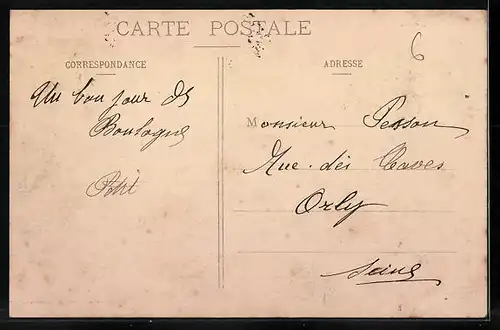 CARTE POSTALE
6
CORRESPONDANCE
ADRESSE
Un bon jour de
Boulogne
Petit
Monsieur Pesson
Rue des Caves
Orly
Seine